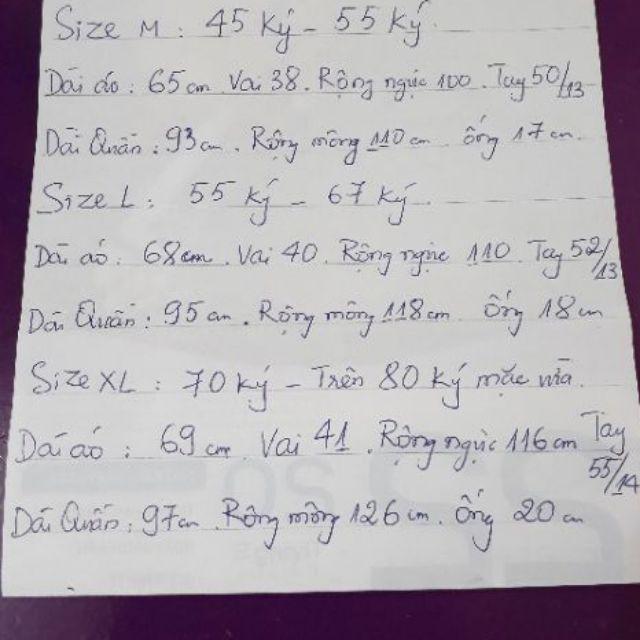 Size M : 45 Ký - 55 Ký.
Dài áo : 65 cm Vai 38 . Rộng ngực 100 . Tay 50/13
Dài Quần : 93 cm . Rộng mông 110 cm ống 17 cm
Size L : 55 ký - 67 Ký.
Dài áo : 68 cm . Vai 40 . Rộng ngực 110 . Tay 52/13
Dài Quần : 95 cm . Rộng mông 118 cm ống 18 cm
Size XL : 70 ký - Trên 80 ký mặc vừa.
Dài áo : 69 cm Vai 41 . Rộng ngực 116 cm Tay 55/14
Dài Quần : 97 cm . Rộng mông 126 cm . Ống 20 cm